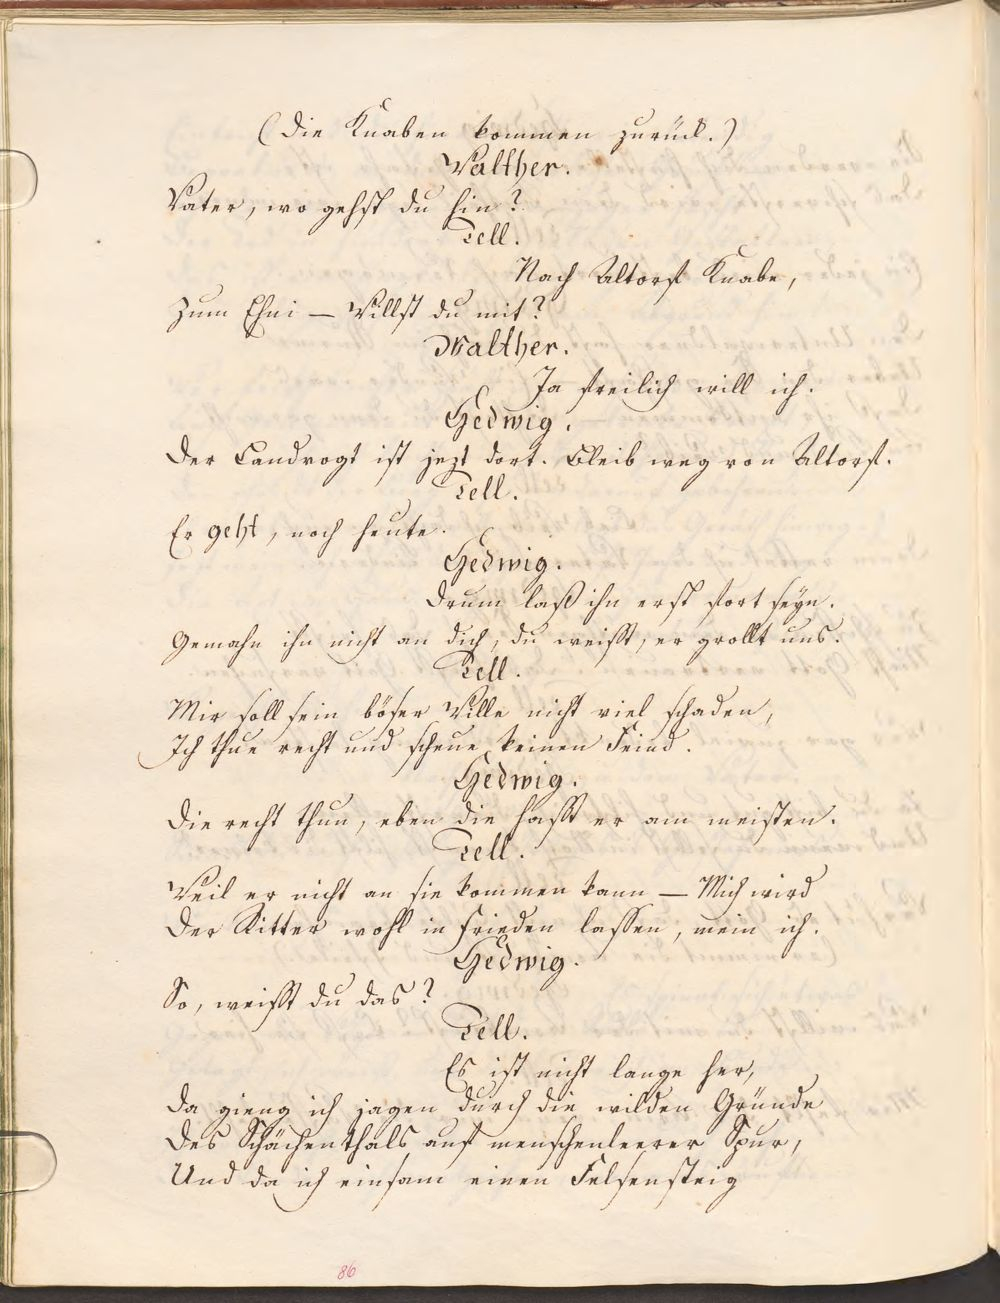 (die Knaben kommen zurück.)
Walther.
Vater, wo gehst du hin?
Tell.
Nach Altorf Knabe,
Zum Ehni — Willst du mit?
Walther.
Ja freilich will ich.
Hedwig.
Der Landvogt ist jezt dort. Bleib weg von Altorf.
Tell.
Er geht, noch heute.
Hedwig.
Drum laß ihn erst fort seyn.
Gemahn ihn nicht an dich, du weisst, er grollt uns.
Tell.
Mir soll sein böser Wille nicht viel schaden,
Ich thue recht und scheue keinen Feind.
Hedwig.
Die recht thun, eben die hasst er am meisten.
Tell.
Weil er nicht an sie kommen kann — Mich wird
Der Ritter wohl in Frieden lassen, mein ich.
Hedwig.
So, weisst du das?
Tell.
Es ist nicht lange her,
Da gieng ich jagen durch die wilden Gründe
Des Schächenthals auf menschenleerer Spur,
Und da ich einsam einen Felsensteig
86